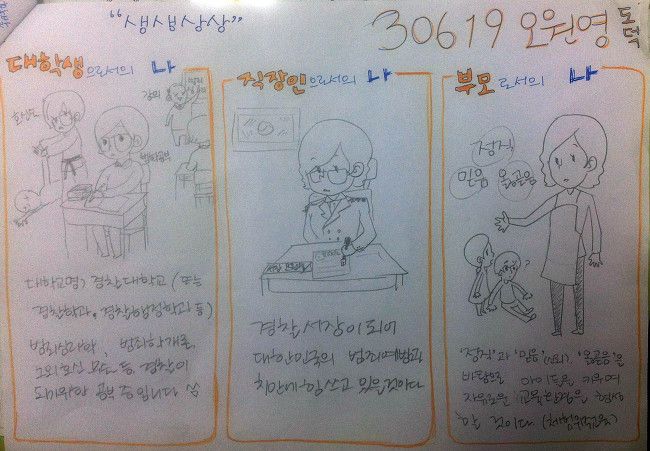 "생생상상"
30619 오원영
도덕
대학생으로서의 나
강의
범죄심리
대학교명) 경찰대학교 (또는
경찰학과, 경찰행정학과 등)
범죄심리학, 범죄학개론,
그외 최신 무도 등 경찰이
되기위한 공부 중입니다
직장인으로서의 나
경찰서장이 되어
대한민국의 범죄예방과
치안에 힘쓰고 있을것이다
부모로서의 나
정직
믿음 올곧음
'정직'과 '믿음'(신뢰), '올곧음'을
바탕으로 아이들을 키우며
자유로운 교육환경을 형성
할 것이다 (체험위주)